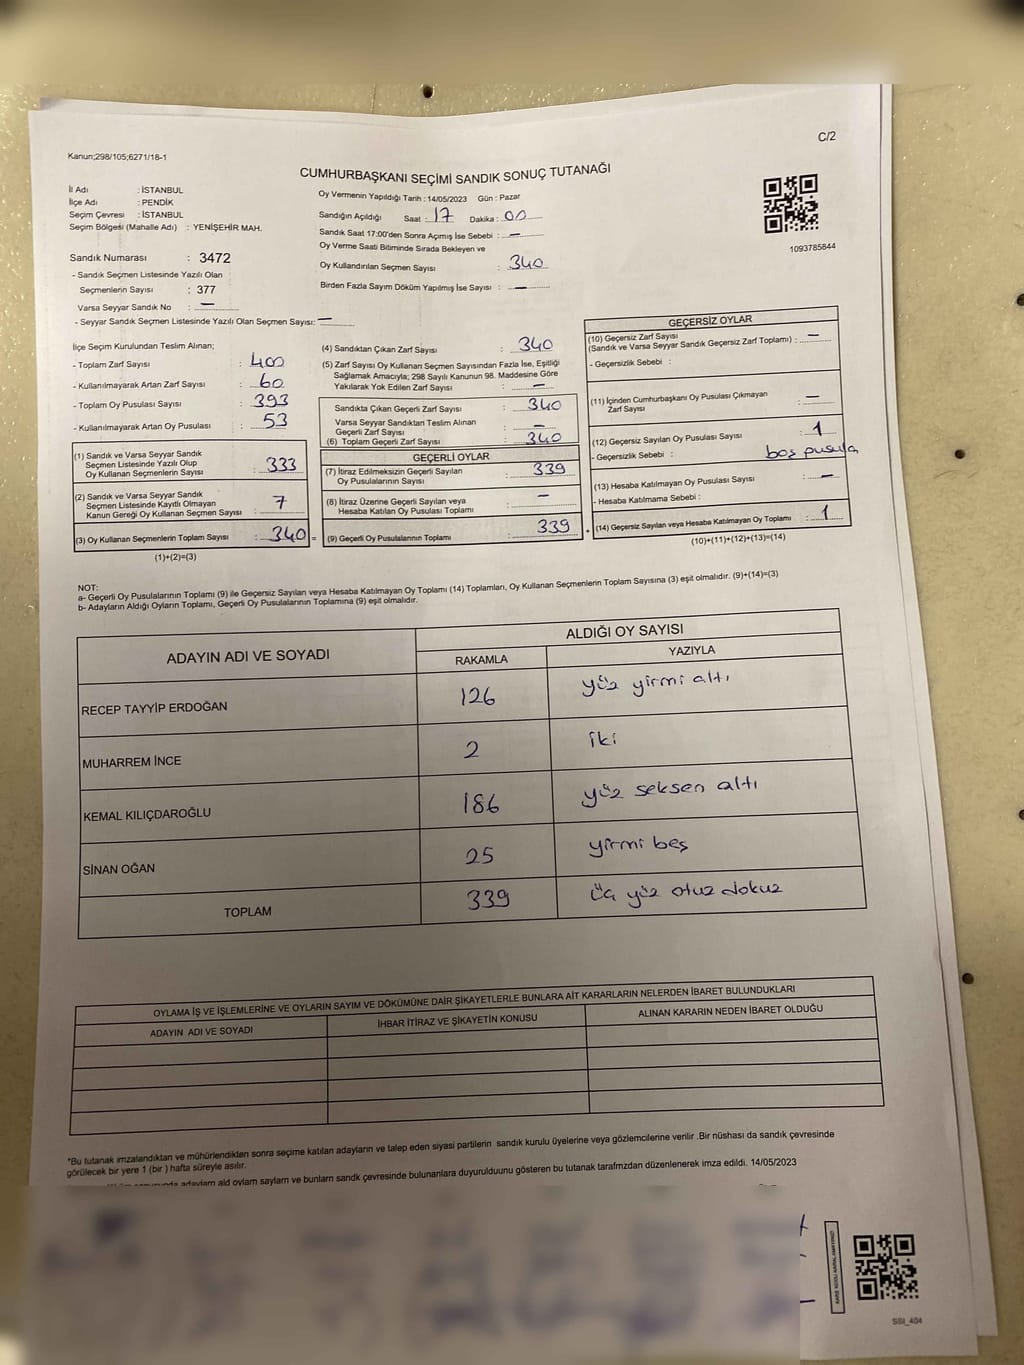 C/2
Kanun;298/105;6271/18-1
CUMHURBAŞKANI SEÇİMİ SANDIK SONUÇ TUTANAĞI
İl Adı : İSTANBUL
İlçe Adı : PENDİK
Seçim Çevresi : İSTANBUL
Seçim Bölgesi (Mahalle Adı) : YENİŞEHİR MAH.
Sandık Numarası : 3472
- Sandık Seçmen Listesinde Yazılı Olan
Seçmenlerin Sayısı : 377
Varsa Seyyar Sandık No : —
- Seyyar Sandık Seçmen Listesinde Yazılı Olan Seçmen Sayısı: —
Oy Vermenin Yapıldığı Tarih : 14/05/2023 Gün : Pazar
Sandığın Açıldığı Saat : 17 Dakika : 00
Sandık Saat 17:00'den Sonra Açımış İse Sebebi : —
Oy Verme Saati Bitiminde Sırada Bekleyen ve
Oy Kullandırılan Seçmen Sayısı : 340
Birden Fazla Sayım Döküm Yapılmış İse Sayısı : —
1093785844
İlçe Seçim Kurulundan Teslim Alınan;
- Toplam Zarf Sayısı : 400
- Kullanılmayarak Artan Zarf Sayısı : 60
- Toplam Oy Pusulası Sayısı : 393
- Kullanılmayarak Artan Oy Pusulası : 53
(1) Sandık ve Varsa Seyyar Sandık
Seçmen Listesinde Yazılı Olup
Oy Kullanan Seçmenlerin Sayısı : 333
(2) Sandık ve Varsa Seyyar Sandık
Seçmen Listesinde Kayıtlı Olmayan
Kanun Gereği Oy Kullanan Seçmen Sayısı : 7
(3) Oy Kullanan Seçmenlerin Toplam Sayısı : 340 =
(1)+(2)=(3)
(4) Sandıktan Çıkan Zarf Sayısı : 340
(5) Zarf Sayısı Oy Kullanan Seçmen Sayısından Fazla İse, Eşitliği
Sağlamak Amacıyla; 298 Sayılı Kanunun 98. Maddesine Göre
Yakılarak Yok Edilen Zarf Sayısı : —
Sandıkta Çıkan Geçerli Zarf Sayısı : 340
Varsa Seyyar Sandıktan Teslim Alınan
Geçerli Zarf Sayısı : —
(6) Toplam Geçerli Zarf Sayısı : 340
GEÇERLİ OYLAR
(7) İtiraz Edilmeksizin Geçerli Sayılan
Oy Pusulalarının Sayısı : 339
(8) İtiraz Üzerine Geçerli Sayılan veya
Hesaba Katılan Oy Pusulası Toplamı : —
(9) Geçerli Oy Pusulalarının Toplamı : 339 +
GEÇERSİZ OYLAR
(10) Geçersiz Zarf Sayısı
(Sandık ve Varsa Seyyar Sandık Geçersiz Zarf Toplamı) : —
- Geçersizlik Sebebi :
(11) İçinden Cumhurbaşkanı Oy Pusulası Çıkmayan
Zarf Sayısı : —
(12) Geçersiz Sayılan Oy Pusulası Sayısı : 1
- Geçersizlik Sebebi : boş pusula
(13) Hesaba Katılmayan Oy Pusulası Sayısı : —
- Hesaba Katılmama Sebebi :
(14) Geçersiz Sayılan veya Hesaba Katılmayan Oy Toplamı : 1
(10)+(11)+(12)+(13)=(14)
NOT:
a- Geçerli Oy Pusulalarının Toplamı (9) ile Geçersiz Sayılan veya Hesaba Katılmayan Oy Toplamı (14) Toplamları, Oy Kullanan Seçmenlerin Toplam Sayısına (3) eşit olmalıdır. (9)+(14)=(3)
b- Adayların Aldığı Oyların Toplamı, Geçerli Oy Pusulalarının Toplamına (9) eşit olmalıdır.
ADAYIN ADI VE SOYADI ALDIĞI OY SAYISI
RAKAMLA YAZIYLA
RECEP TAYYİP ERDOĞAN 126 yüz yirmi altı
MUHARREM İNCE 2 iki
KEMAL KILIÇDAROĞLU 186 yüz seksen altı
SİNAN OĞAN 25 yirmi beş
TOPLAM 339 üç yüz otuz dokuz
OYLAMA İŞ VE İŞLEMLERİNE VE OYLARIN SAYIM VE DÖKÜMÜNE DAİR ŞİKAYETLERLE BUNLARA AİT KARARLARIN NELERDEN İBARET BULUNDUKLARI
ADAYIN ADI VE SOYADI İHBAR İTİRAZ VE ŞİKAYETİN KONUSU ALINAN KARARIN NEDEN İBARET OLDUĞU
*Bu tutanak imzalandıktan ve mühürlendikten sonra seçime katılan adayların ve talep eden siyasi partilerin sandık kurulu üyelerine veya gözlemcilerine verilir .Bir nüshası da sandık çevresinde
görülecek bir yere 1 (bir ) hafta süreyle asılır.
adayların ald oyların sayların ve bunların sandk çevresinde bulunanlara duyurulduunu gösteren bu tutanak tarafmzdan düzenlenerek imza edildi. 14/05/2023
SSI_404